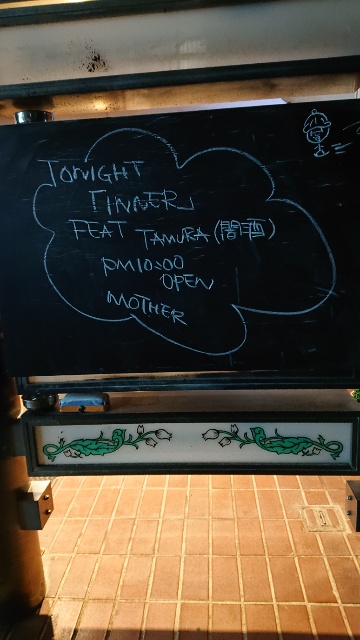 TONIGHT
「INNER」
FEAT TAMURA (闇酒)
PM10:00
OPEN
MOTHER